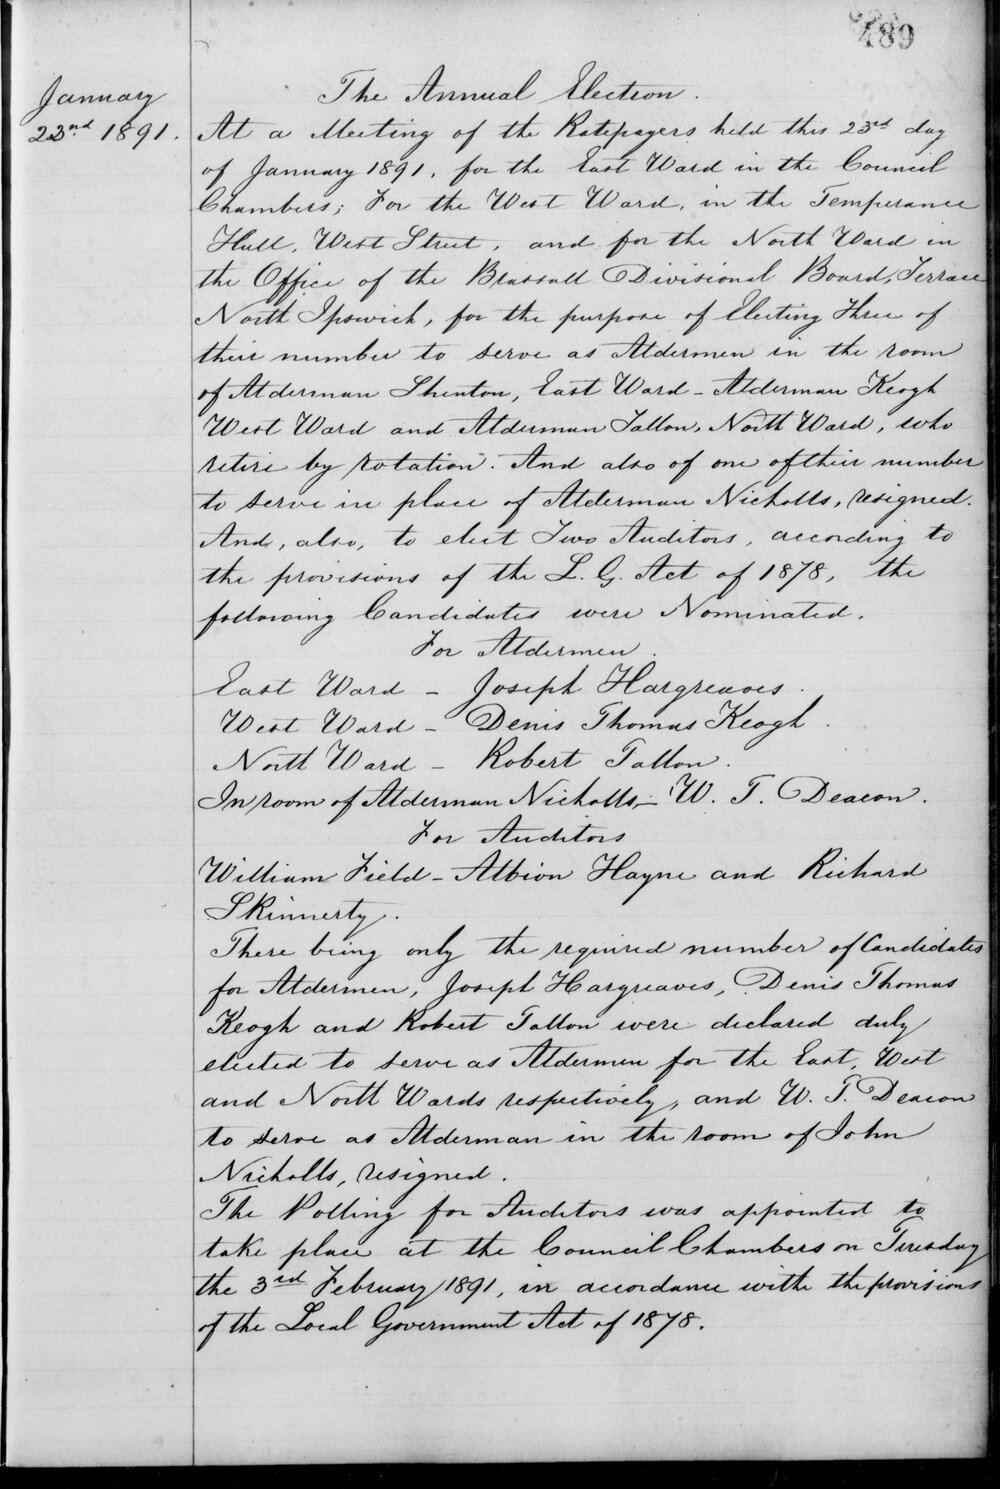 489
January
23rd 1891.
The Annual Election.
At a Meeting of the Ratepayers held this 23rd day
of January 1891, for the East Ward in the Council
Chambers; For the West Ward, in the Temperance
Hall, West Street, and for the North Ward in
the Office of the Brassall Divisional Board, Terrace
North Ipswich, for the purpose of Electing Three of
their number to serve as Aldermen in the room
of Alderman Shenton, East Ward - Alderman Keogh
West Ward and Alderman Tallon, North Ward, who
retire by rotation. And also of one of their number
to serve in place of Alderman Nicholls, resigned.
And, also, to elect Two Auditors, according to
the provisions of the L. G. Act of 1878, the
following Candidates were Nominated.
For Aldermen.
East Ward - Joseph Hargreaves.
West Ward - Denis Thomas Keogh.
North Ward - Robert Tallon.
In room of Alderman Nicholls - W. T. Deacon.
For Auditors
William Field - Albion Hayne and Richard
Skinnerty.
There being only the required number of Candidates
for Aldermen, Joseph Hargreaves, Denis Thomas
Keogh and Robert Tallon were declared duly
elected to serve as Aldermen for the East, West
and North Wards respectively, and W. T. Deacon
to serve as Alderman in the room of John
Nicholls, resigned.
The Polling for Auditors was appointed to
take place at the Council Chambers on Tuesday
the 3rd February 1891, in accordance withe the provisions
of the Local Government Act of 1878.